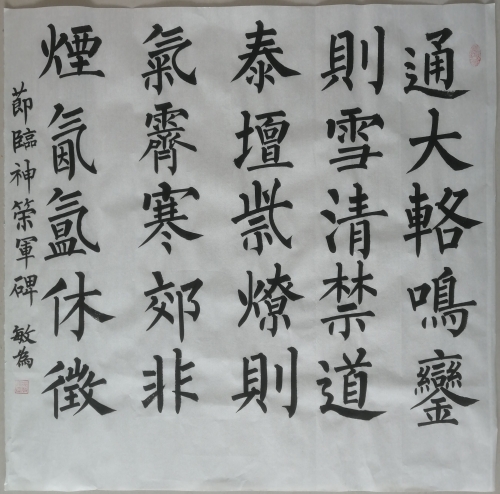 通大輅鳴鑾
則雪清禁道
泰壇祡燎則
氣霽寒郊非
煙氤氳休徵
節臨神策軍碑 敏為